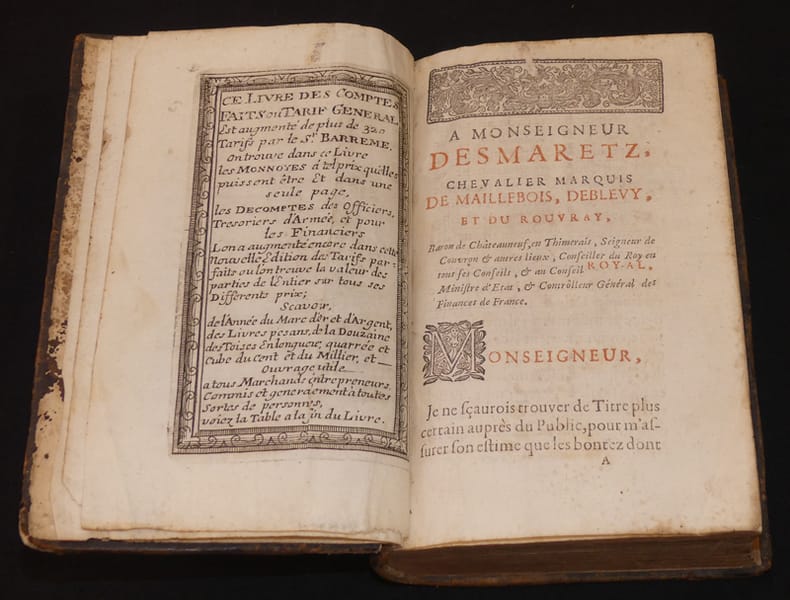 CE LIVRE DES COMPTES
FAITS OU TARIF GENERAL
Est augmenté de plus de 320
Tarifs par le Sr. BARREME,
On trouve dans ce Livre
les MONNOYES a tel prix quelles
puissent être Et dans une
seule page,
les DECOMPTES des Officiers,
Tresoriers d'Armée, et pour
les Financiers
Lon a augmenté encore dans cette
Nouvelle Edition des Tarifs par-
faits ou lon treuve la valeur des
parties de lEntier sur tous ses
Differents prix;
Scavoir,
de l'Année du Marc d'or et d'Argent,
des Livres pesans, de la Douzaine
des Toises En longueur, quarrée et
Cube du Cent et du Millier, et
Ouvrage utile
a tous Marchands Entrepreneurs,
Commis et generalement à toutes
Sortes de personnes,
voiez la Table a la fin du Livre.
A MONSEIGNEUR
DESMARETZ,
CHEVALIER MARQUIS
DE MAILLEBOIS, DEBLEVY,
ET DU ROUVRAY,
Baron de Châteauneuf, en Thimerais, Seigneur de
Couvron & autres lieux, Conseiller du Roy en
tous ses Conseils, & au Conseil ROYAL,
Ministre d'Etat, & Contrôlleur Général des
Finances de France.
MONSEIGNEUR,
Je ne sçaurois trouver de Titre plus
certain auprès du Public, pour m'as-
surer son estime que les bontez dont
A